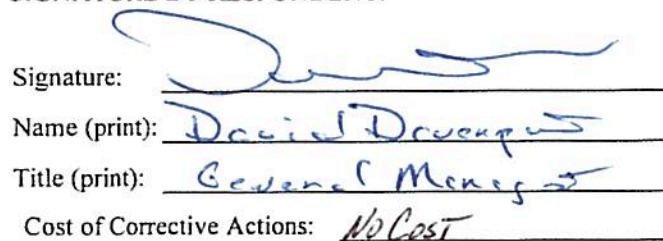 Signature:
Name (print): David Davenport
Title (print): General Manager
Cost of Corrective Actions: No Cost